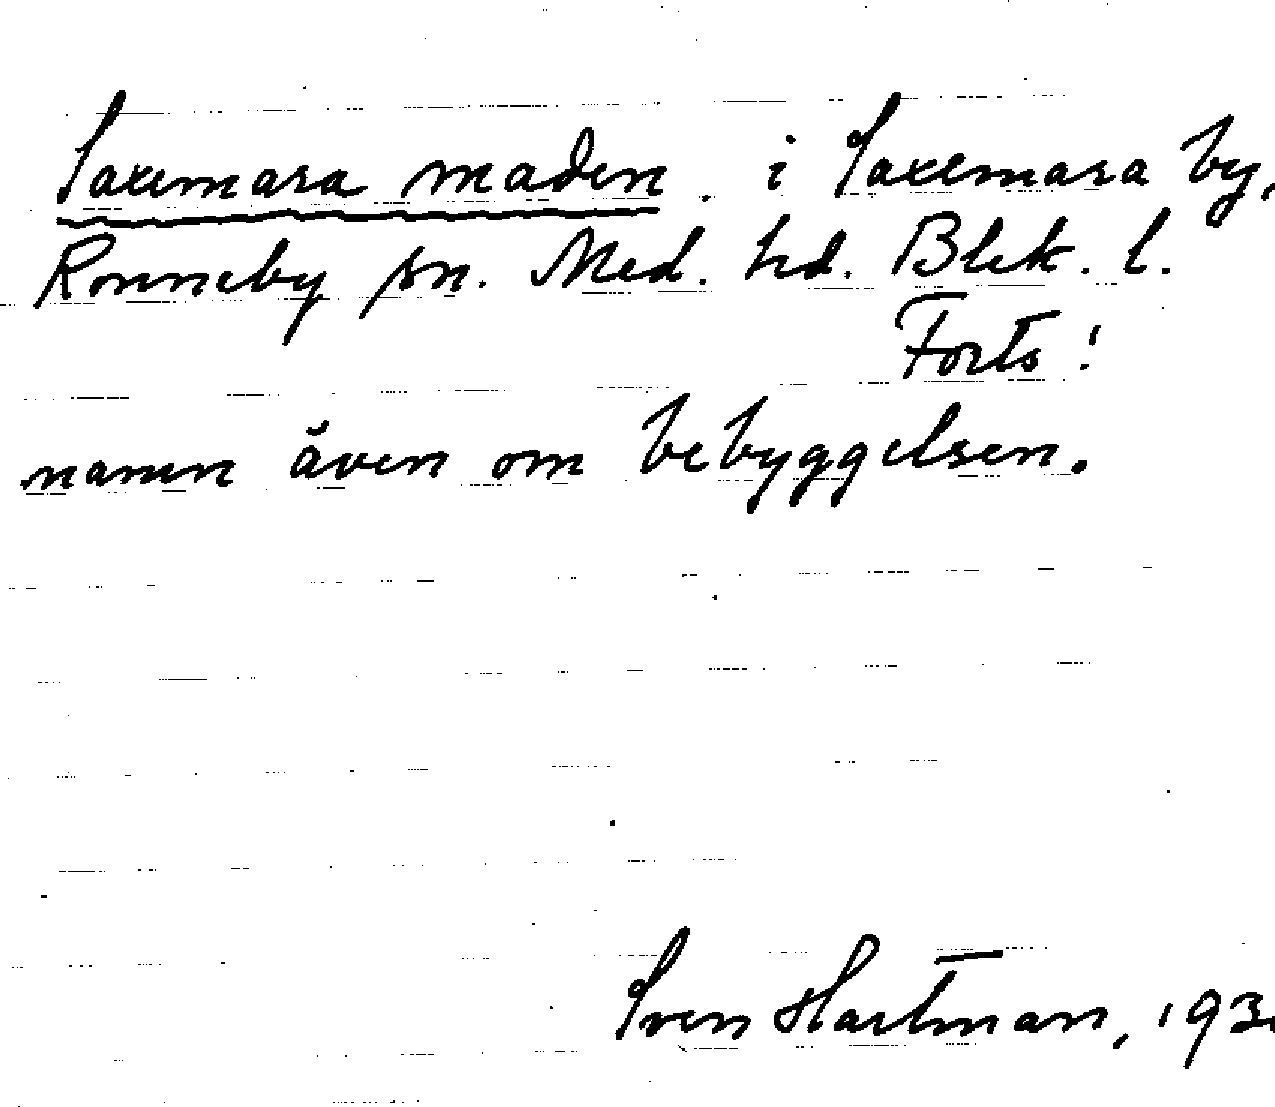 Saxemara maden i Saxemara by,
Ronneby sn. Med. hd. Blek. l.
Forts!
namn även om bebyggelsen.
Sven Hartman, 193